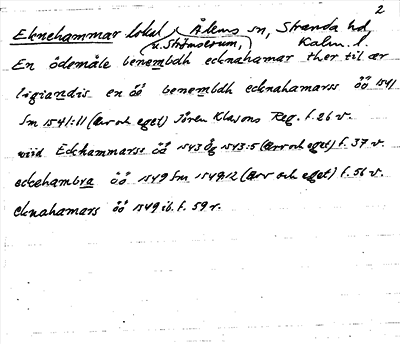 2
Eknehammar lokal Ålems sn, Stranda hd,
u. Strömserum, Kalm. l.
En ödemåle benembdh ecknahamar ther til ær
ligiandis en öö benembdh ecknahamars öö 1541
Sm 1541:11 (Arv och eget) Jören Klasons Reg. f. 26 v.
wiid Eckhammars öö 1543 Åg 1543:5 (Arv och eget) f. 37 v.
eckehambra öö 1549 Sm 1549:12 (Arv och eget) f. 56 v.
eknahamars öö 1549 ib. f. 59 r.